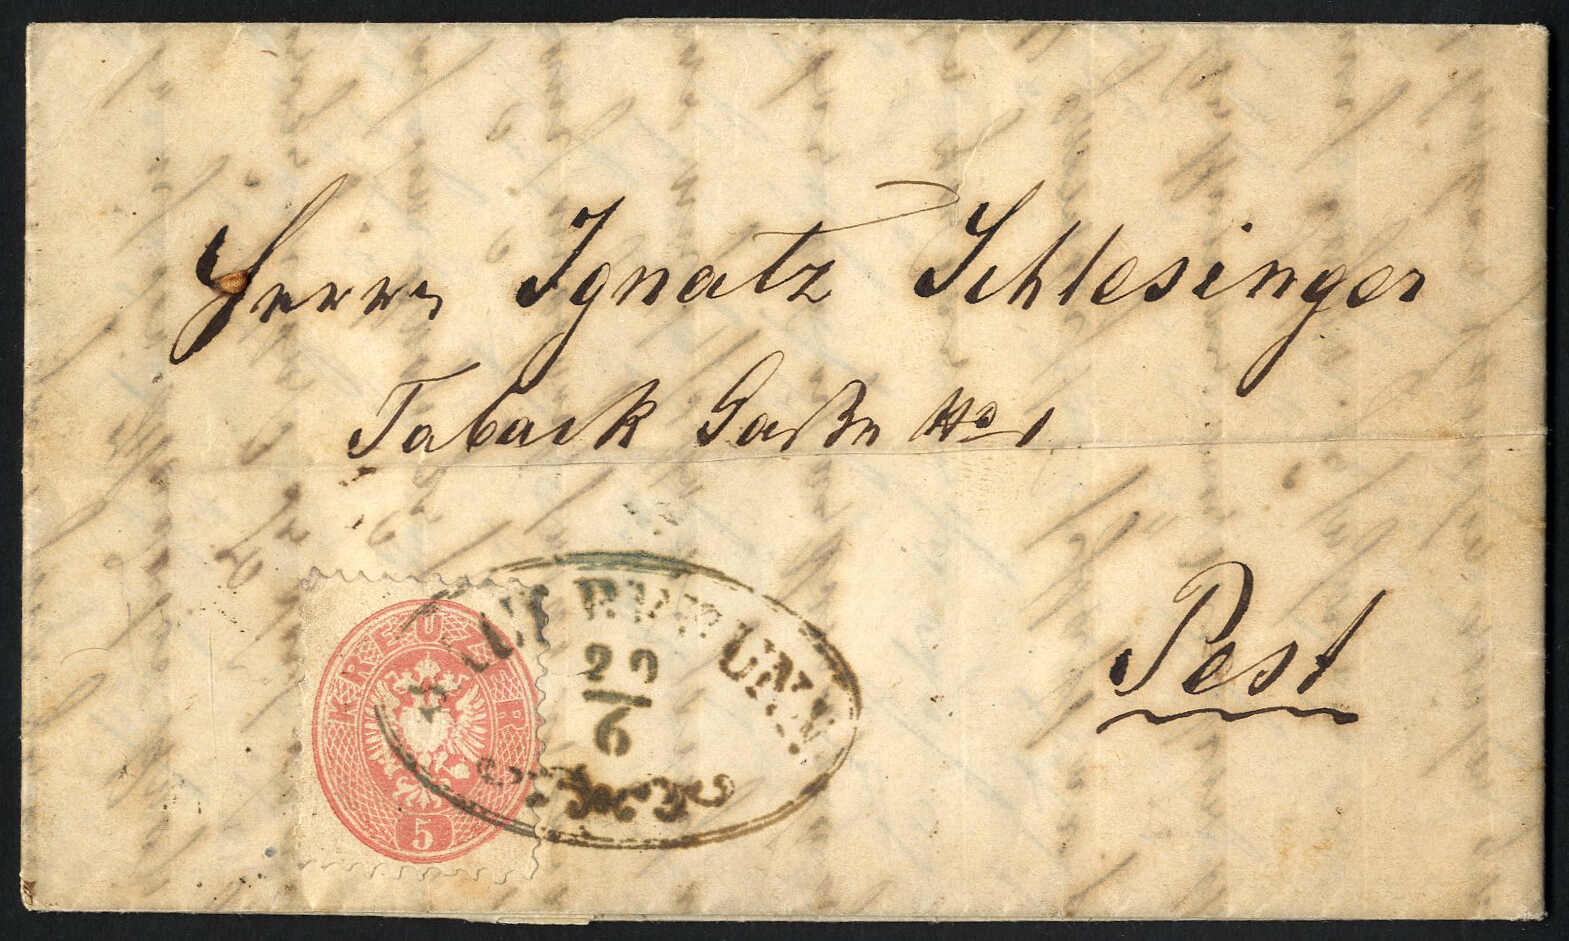 Herrn Ignatz Schlesinger
Taback Gaße No 1
Pest
KREUZER
5
29
6